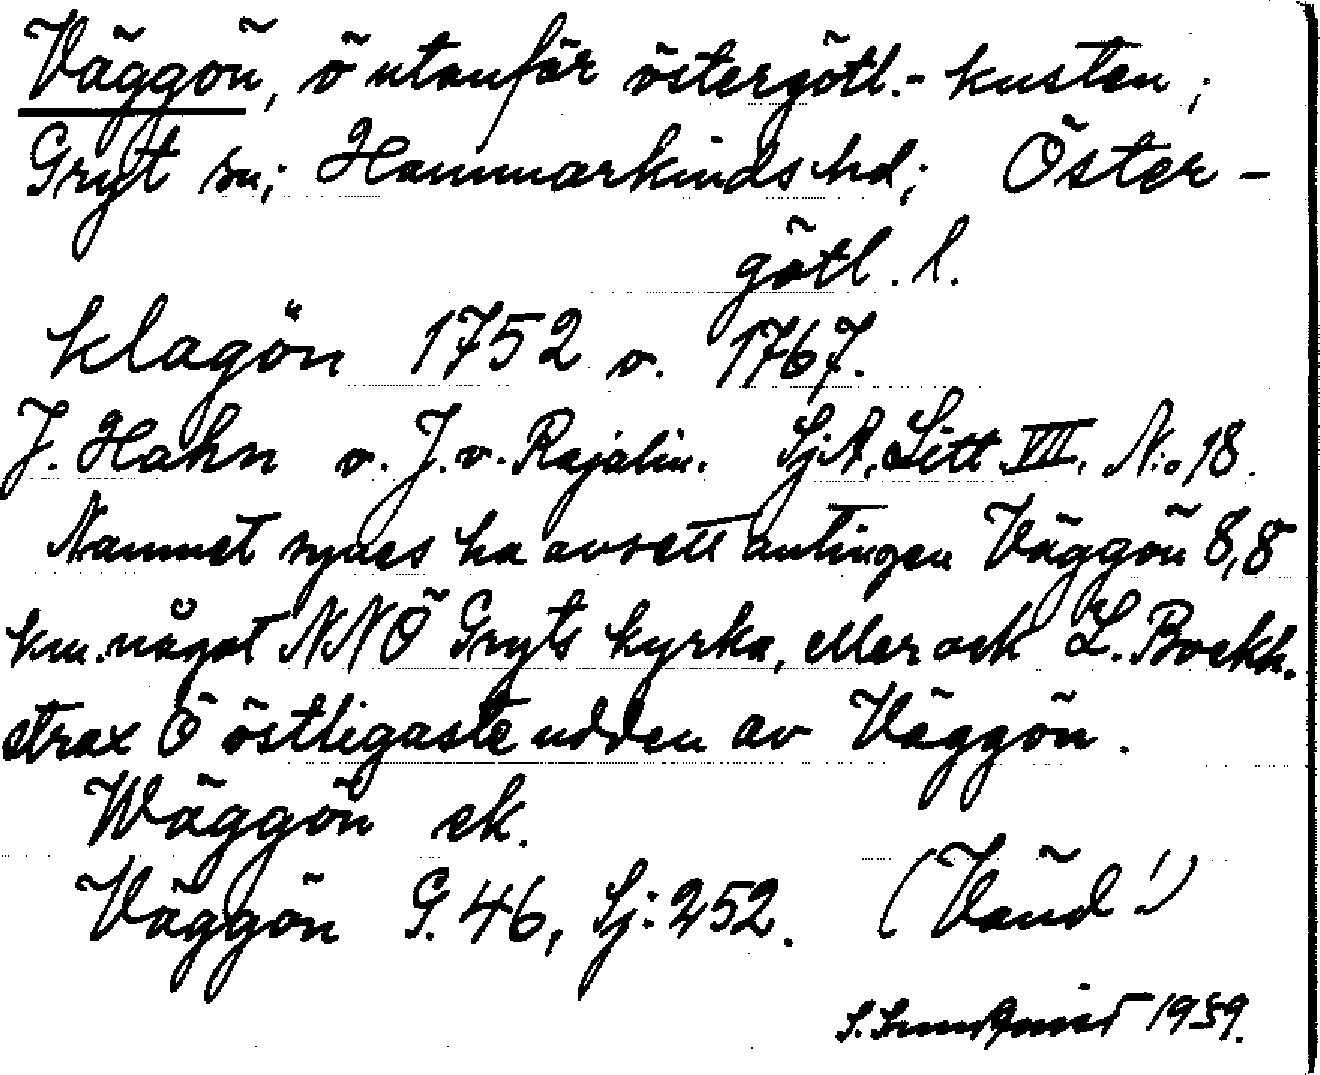 Väggön, ö utanför östergötl.-kusten;
Gryt sn; Hammarkinds hd; Öster-
götl. l.
Klagön 1752 o. 1767.
J. Hahn o. J. v. Rajalin. SjA, Litt VIII. N:o 18.
Namnet synes ha avsett antingen Väggön 8,8
km. något NNÖ Gryts kyrka, eller ock L. Bockh.
strax Ö östligaste udden av Väggön.
Wäggön ek.
Väggön G. 46, Sj: 252. (Vänd!)
1939.